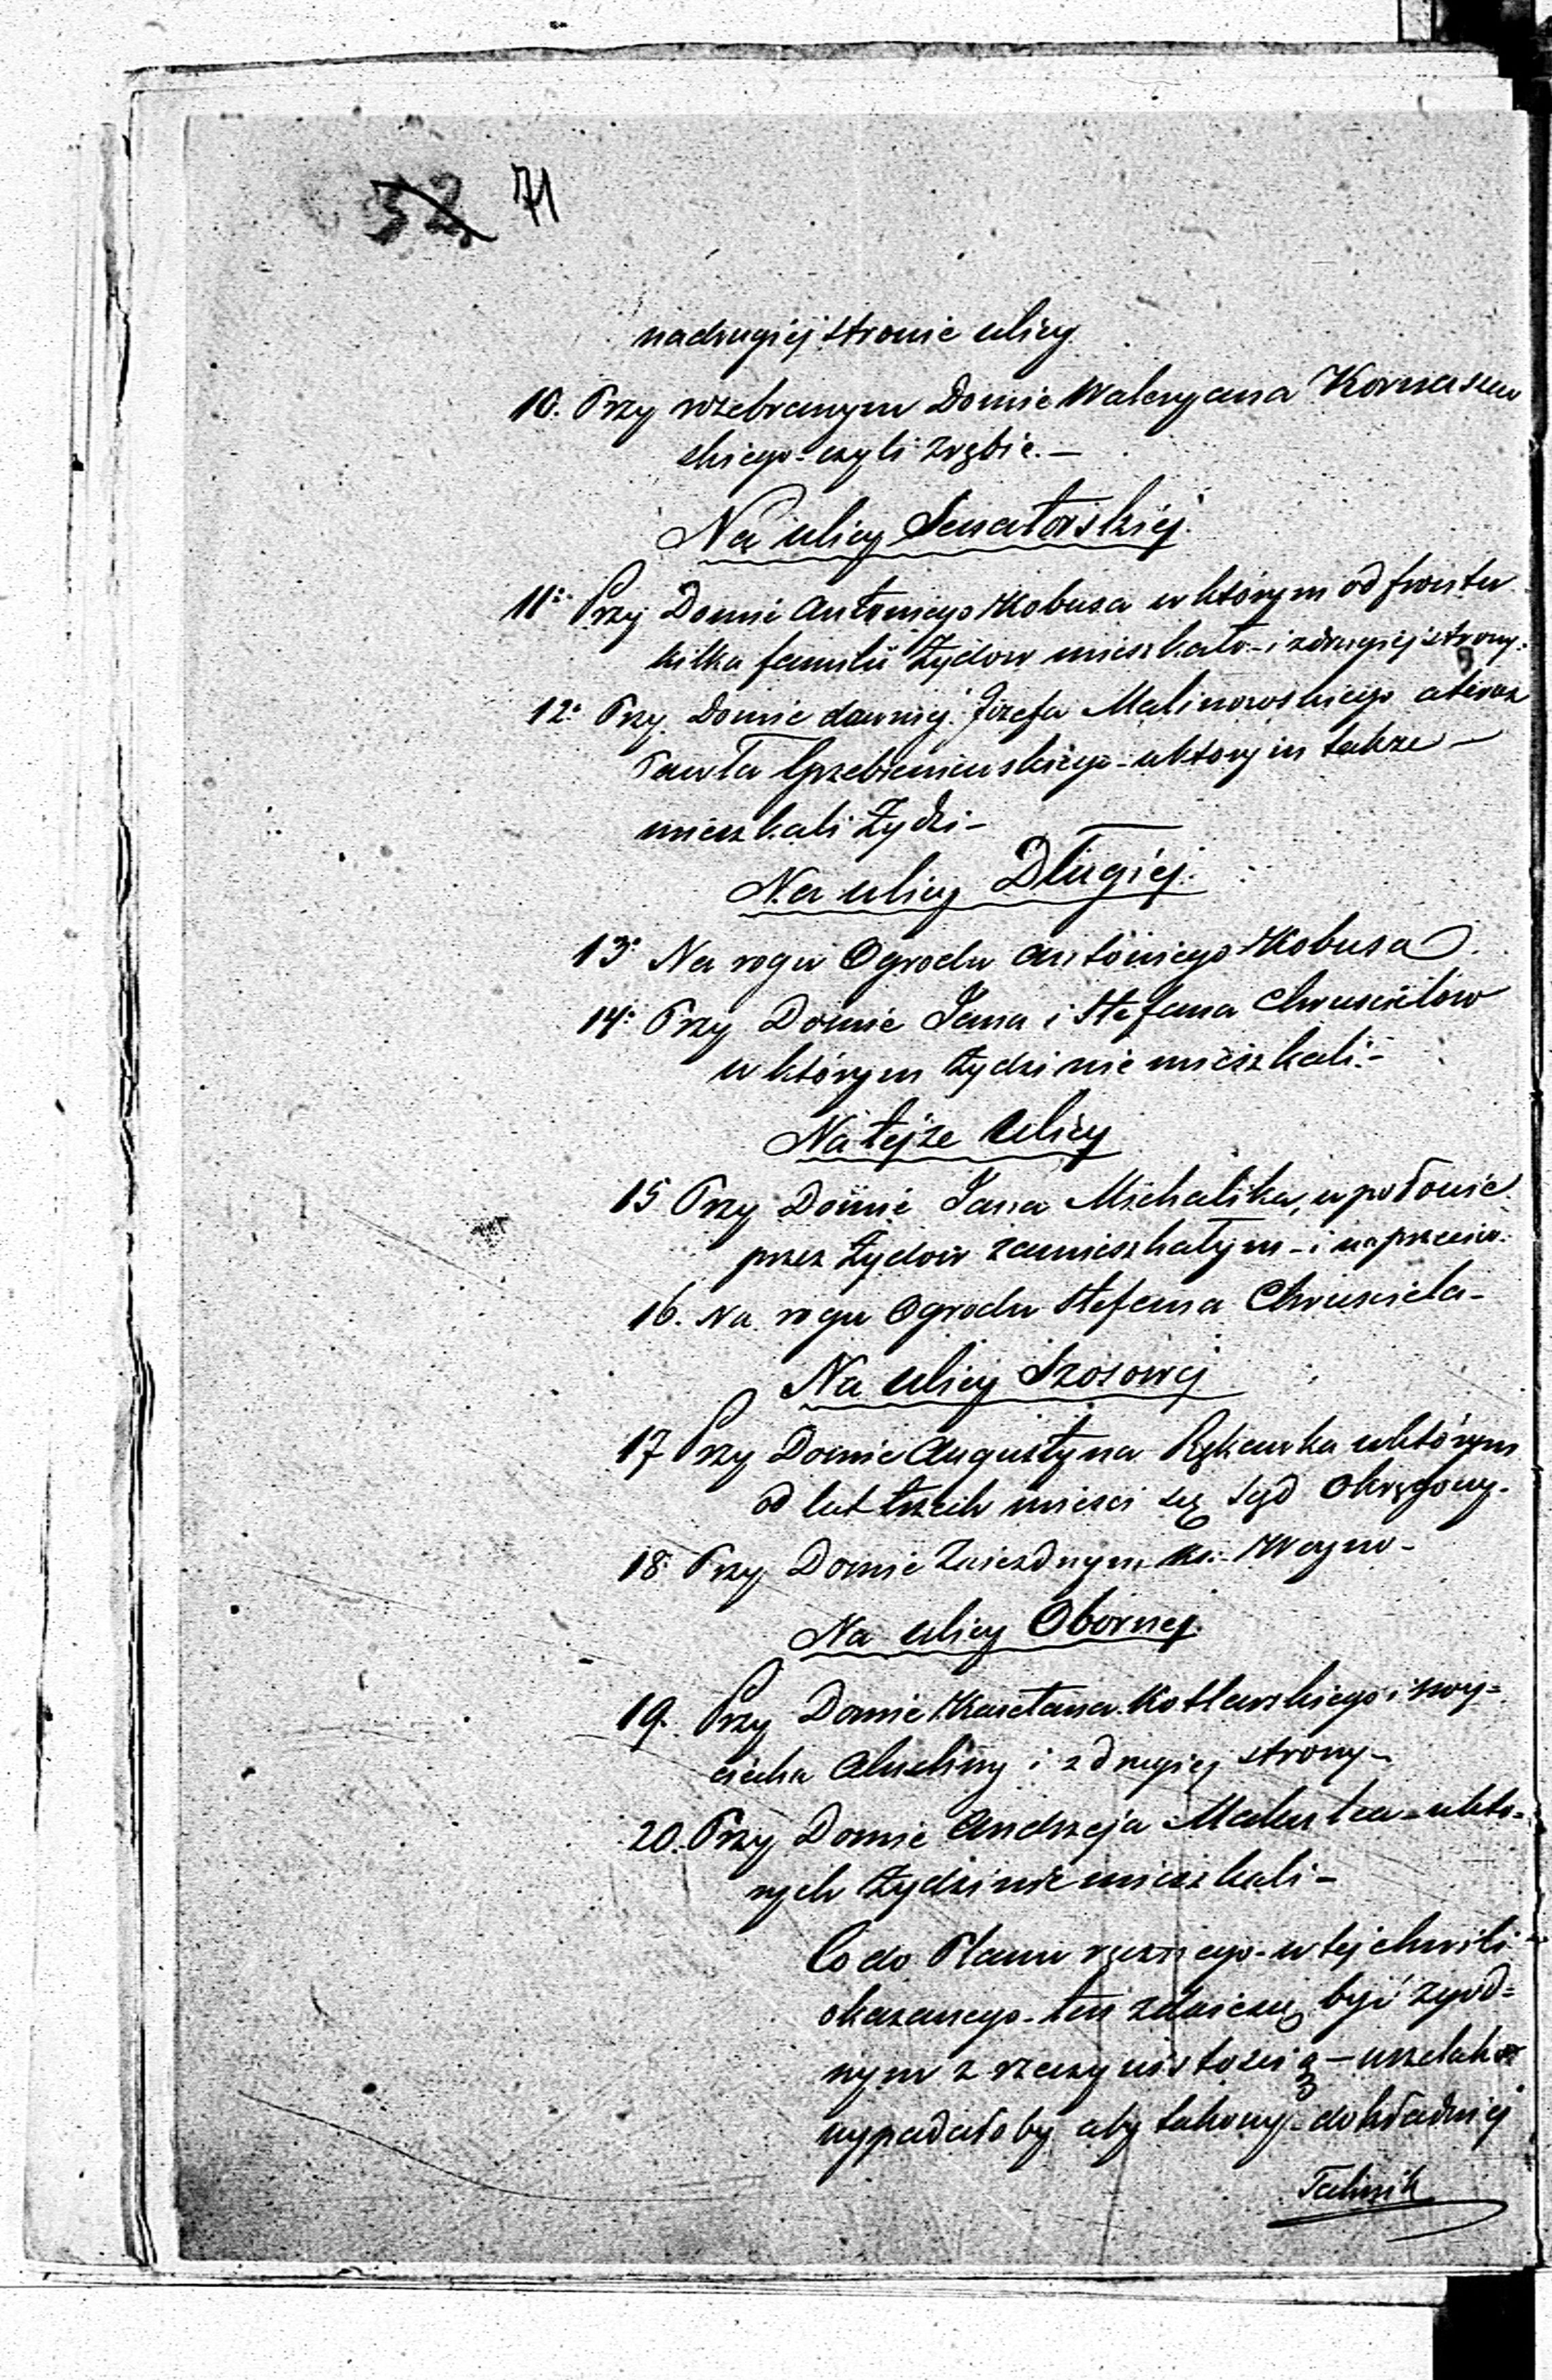 52 71
na drugiej stronie ulicy
10. Przy rozebranym Domie Waleryana Kornaszew
skiego - czyli zrębie. -
Na ulicy Senatorskiej.
11: Przy Domie Antoniego Kobusa w którym od frontu
kilka familii Żydow mieszkało - i z drugiej strony.
12: Przy Domie dawniej Józefa Malinowskiego a teraz
Pawła Grzebieniewskiego - w ktorym także -
mieszkali Żydzi -
Na ulicy Długiej.
13: Na rogu Ogrodu Antoniego Kobusa
14: Przy Domie Jana i Stefana Chruscielow
w którym Żydzi nie mieszkali. -
Na tejże Ulicy
15 Przy Domie Jana Michalika, w połowie
przez Żydow zamieszkałym - i naprzeciw.
16. Na rogu Ogrodu Stefana Chrusciela -
Na ulicy Szosowej
17 Przy Domie Augustyna Rękawka w którym
od lat trzech miesci się Sąd Okręgowy.
18: Przy Domie Zaiezdnym
Na ulicy Obornej
19. Przy Domie Kaietana Kotlarskiego i Woy=
ciecha i z drugiej strony -
20. Przy Domie Andrzeja - w któ=
rych Żydzi nie mieszkali -
Co do Planu ręcznego - w tej chwili
okazanego - ten zdaie się być zgod=
nym z rzeczywistością - wszelako
wypadałoby aby takowy - dokładniej